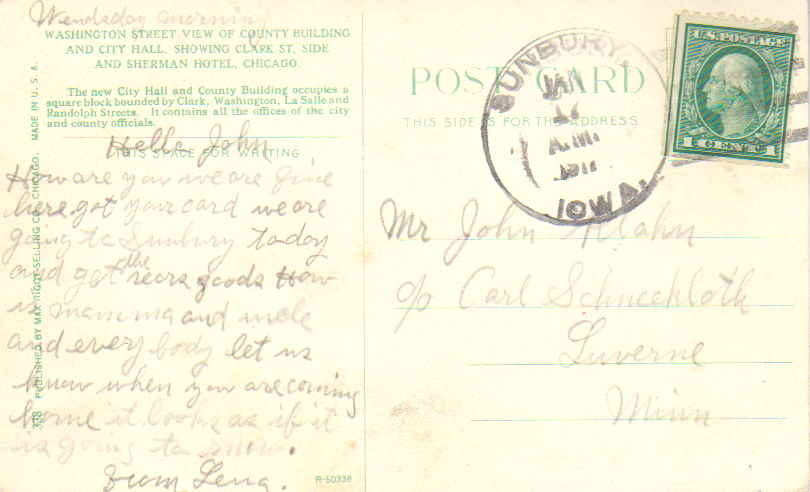 Wendsday morning
WASHINGTON STREET VIEW OF COUNTY BUILDING
AND CITY HALL, SHOWING CLARK ST. SIDE
AND SHERMAN HOTEL, CHICAGO
The new City Hall and County Building occupies a
square block bounded by Clark, Washington, La Salle and
Randolph Streets. It contains all the offices of the city
and county officials.
Hello John
THIS SPACE FOR WRITING
How are you we are fine
here. got your card we are
going to Sunbury today
and got the goods How
is mamma and uncle
and every body let us
know when you are coming
home it looks as if it
is going to snow.
From Lena.
318 PUBLISHED BY MAX RIGOT SELLING CO., CHICAGO. MADE IN U. S. A.
R-50338
POST CARD
THIS SIDE IS FOR THE ADDRESS
SUNBURY,
JAN
17
A.M.
1917
IOWA.
U.S. POSTAGE
1 CENT 1
Mr John Klahn
c/o Carl Schneekloth
Luverne
Minn